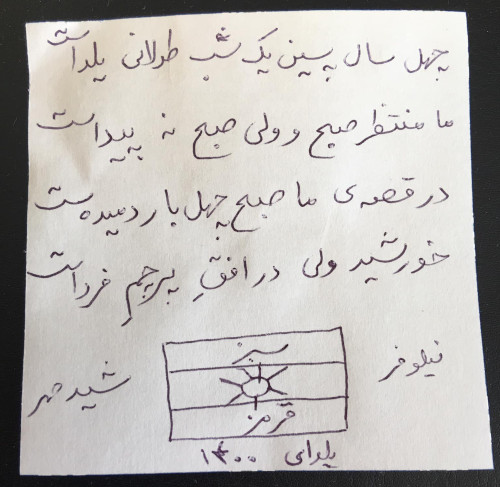 چهل سال پسین یک شب طولانی یلداست
ما منتظر صبح و ولی صبح نه پیداست
در قصه‌ی ما صبح چهل بار دمیده‌ست
خورشید ولی در افقِ پرچمِ فرداست
نیلوفر شیدمهر
سبز
قرمز
یلدای ۱۴۰۰